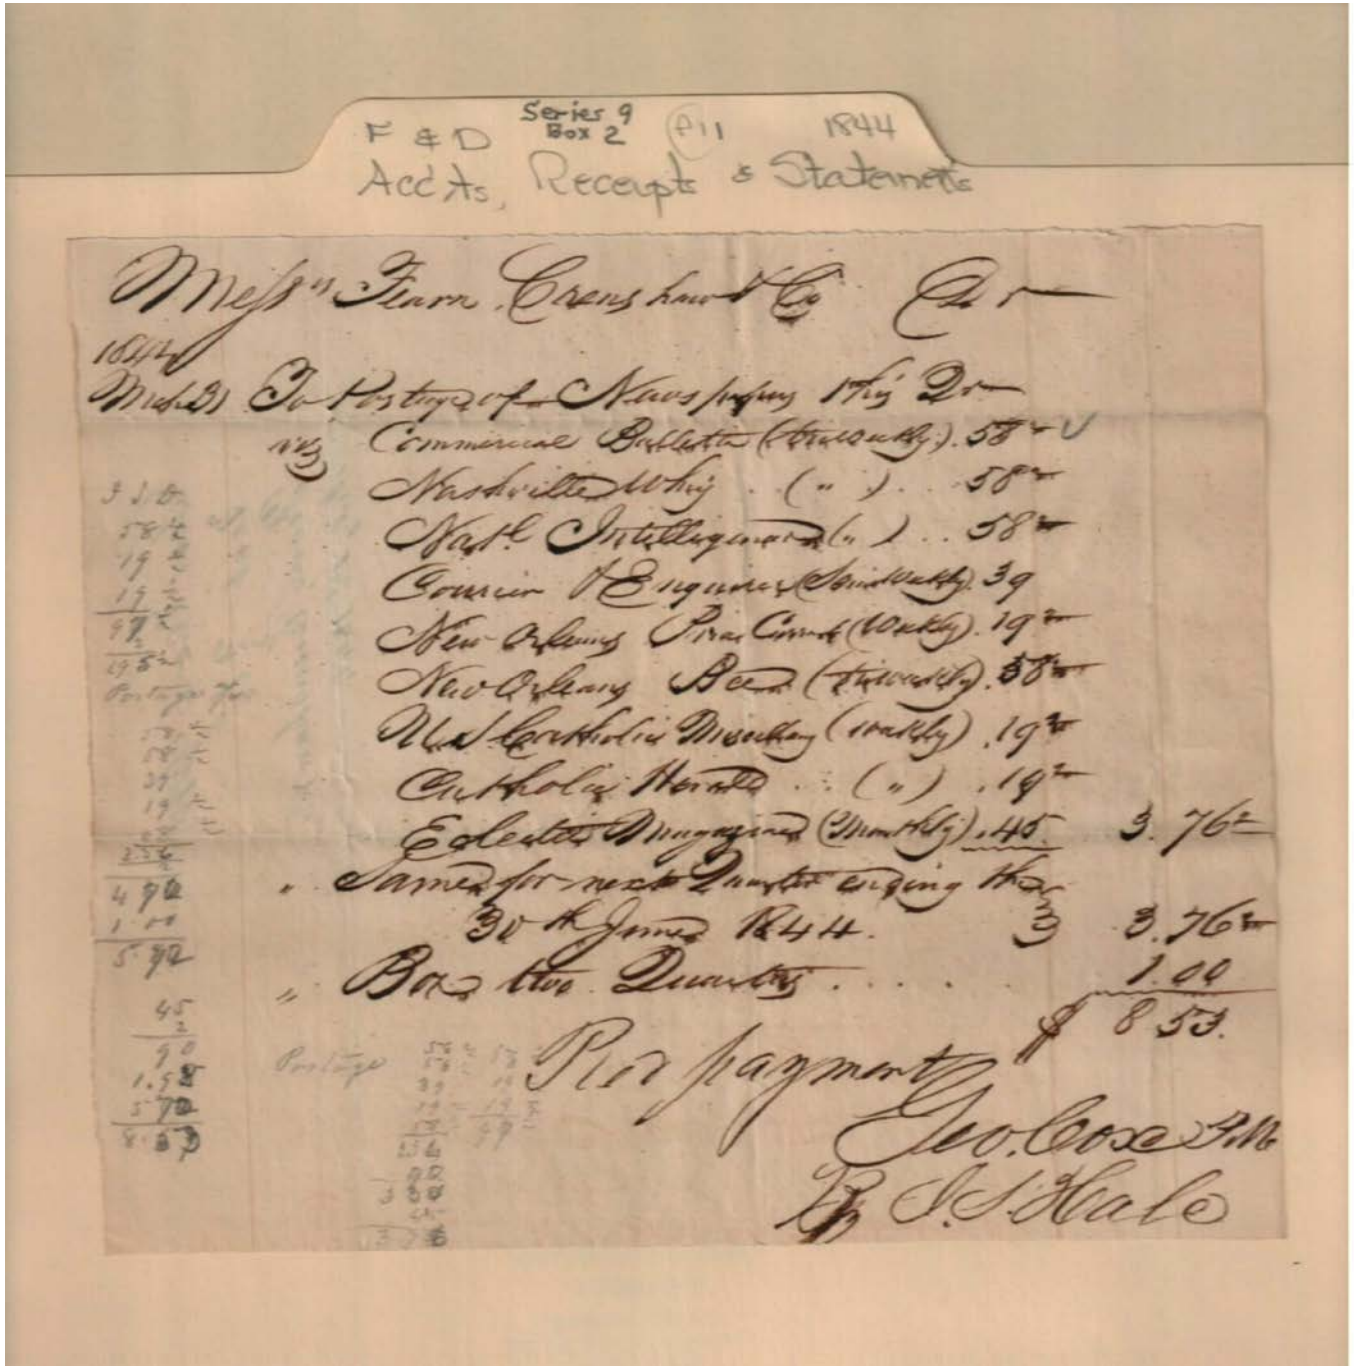 Series 9
F & D Box 2 P11 1844
Acc'ts, Receipts & Statements
Messrs Fearn Crenshaw & Co Dr
1844
To Postage of Newspapers this Qr
viz Commercial Bulletin (triweekly) . 58½ ✓
Nashville Whig . ( " ) . . 58½
Natl. Intelligencer ( " ) . . 58½
Courier & Enquirer (Semiweekly) . 39
New Orleans Price Current (Weekly) . 19½
New Orleans Bee (triweekly) . 58½
U.S. Catholic (weekly) . 19½
Catholic Herald . . ( " ) . 19½
Eclectic Magazine (Monthly) . 45 3.76½
" Same for next Quarter ending the
30th June 1844. 3 3.76½
" Box two Quarters . . . . . 1.00
$ 8 53.
Recd payment
Geo. Coxe P.M.
J.S. Hale
58½
19
19
97½
2
195
Postage for
58
39
19
4 70
1.00
5.70
45
2
90
1.95
5 70
8.53
Postage